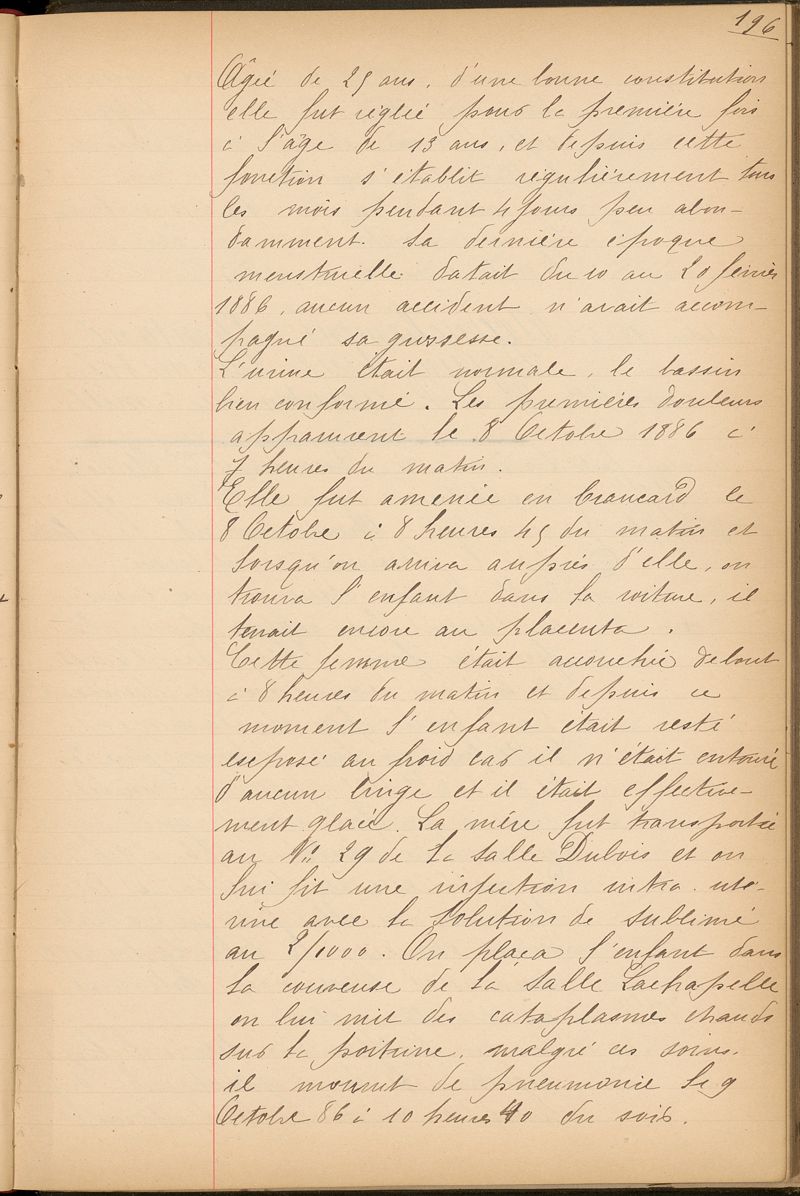 196
Âgée de 25 ans, d'une bonne constitution
elle fut réglée pour la première fois
à l'âge de 13 ans, et depuis cette
fonction s'établit régulièrement tous
les mois pendant 4 jours peu abon-
damment. Sa dernière époque
menstruelle datait du 10 au 20 février
1886, aucun accident n'avait accom-
pagné sa grossesse.
L'urine était normale, le bassin
bien conformé. Les premières douleurs
apparurent le 8 Octobre 1886 à
7 heures du matin.
Elle fut amenée en brancard le
8 Octobre à 8 heures 45 du matin et
lorsqu'on arriva auprès d'elle, on
trouva l'enfant dans la voiture, il
tenait encore au placenta.
Cette femme était accouchée debout
à 8 heures du matin et depuis ce
moment l'enfant était resté
exposé au froid car il n'était entouré
d'aucun linge et il était effective-
ment glacé. La mère fut transportée
au Nº 29 de la salle Dubois et on
lui fit une injection intra-uté-
rine avec la solution de sublimé
au 2/1000. On plaça l'enfant dans
la couveuse de la salle Lachapelle
on lui mit des cataplasmes chauds
sur la poitrine, malgré ces soins.
il mourut de pneumonie le 9
Octobre 86 à 10 heures 40 du soir.